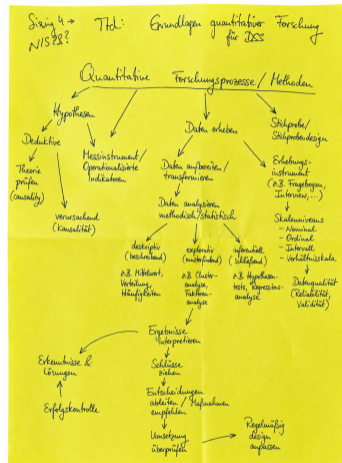 Sizing 4 →
Titel: Grundlagen quantitativer Forschung
für DSS
Quantitative Forschungsprozesse / Methoden
Hypothesen
Deduktive
Theorie
prüfen
(causality)
verursachend
(Kausalität)
Messinstrument /
Operationalisierte
Indikatoren
Daten erheben
Daten aufbereiten /
transformieren
Daten analysieren
methodisch/statistisch
Stichprobe /
Stichprobendesign
Erhebungs-
instrument
(z.B. Fragebogen,
Interview, ...)
Skalenniveaus
- Nominal
- Ordinal
- Intervall
- Verhältnisskala
Datenqualität
(Reliabilität,
Validität)
deskriptiv
(beschreibend)
z.B. Mittelwert,
Verteilung,
Häufigkeiten
explorativ
(musterfindend)
z.B. Cluster-
analyse,
Faktoren-
analyse
inferentiell
(schließend)
z.B. Hypothesen-
tests, Regressions-
analyse
Ergebnisse
interpretieren
Erkenntnisse &
Lösungen
Erfolgskontrolle
Schlüsse
ziehen
Entscheidungen
ableiten / Maßnahmen
empfehlen
Umsetzung
überprüfen
Regelmäßig
design
anpassen